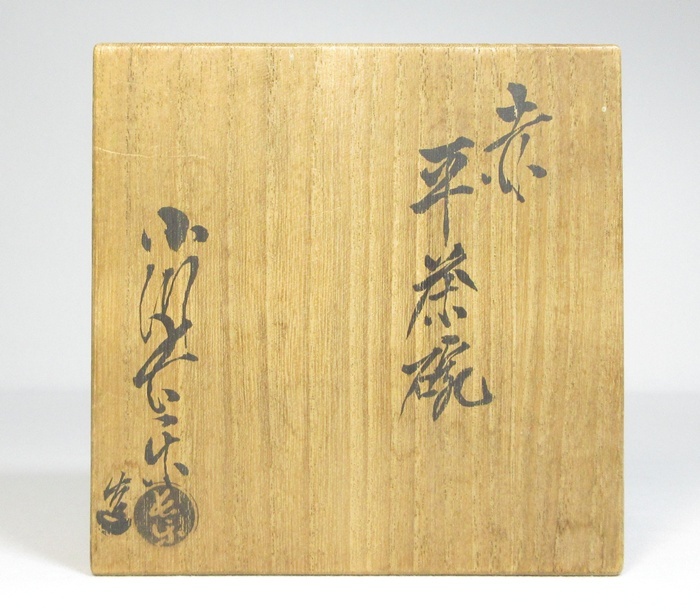 赤
平茶碗
小川長楽
造
長楽